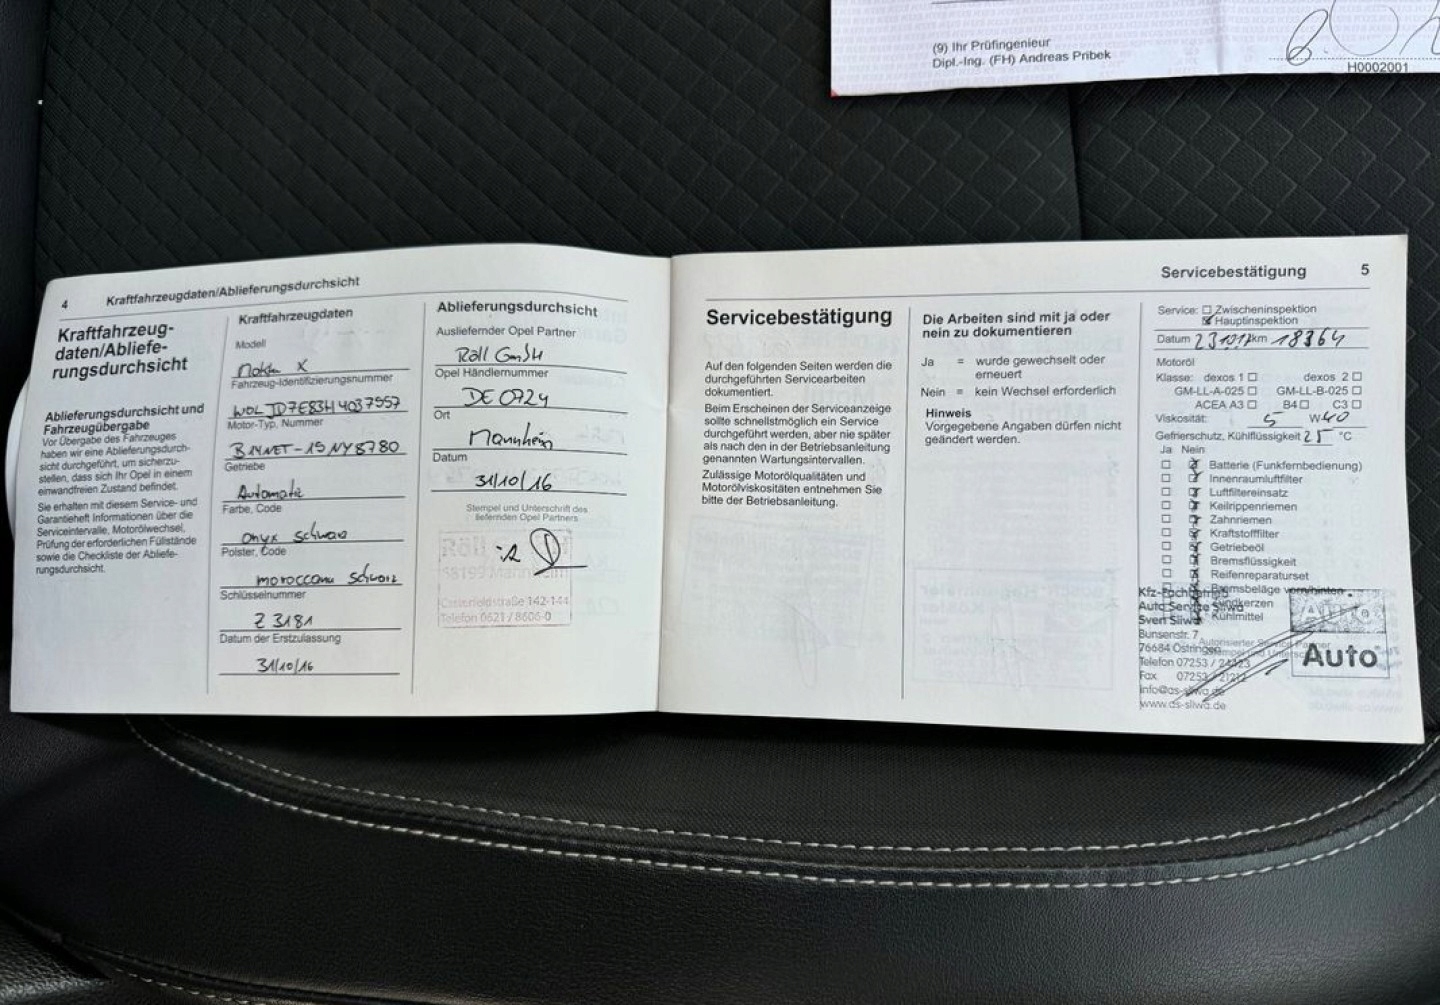 (9) Ihr Prüfingenieur
Dipl.-Ing. (FH) Andreas Pribek
H0002001
4 Kraftfahrzeugdaten/Ablieferungsdurchsicht
Kraftfahrzeug-
daten/Abliefe-
rungsdurchsicht
Ablieferungsdurchsicht und
Fahrzeugübergabe
Vor Übergabe des Fahrzeuges
haben wir eine Ablieferungsdurch-
sicht durchgeführt, um sicherzu-
stellen, dass sich Ihr Opel in einem
einwandfreien Zustand befindet.
Sie erhalten mit diesem Service- und
Garantieheft Informationen über die
Serviceintervalle, Motorölwechsel,
Prüfung der erforderlichen Füllstände
sowie die Checkliste der Abliefe-
rungsdurchsicht.
Kraftfahrzeugdaten
Modell
Mokka X
Fahrzeug-Identifizierungsnummer
W0LJD7E83H4037557
Motor-Typ, Nummer
B14NET-15NY8780
Getriebe
Automatic
Farbe, Code
Onyx Schwarz
Polster, Code
moroccana Schwarz
Schlüsselnummer
Z 3181
Datum der Erstzulassung
31/10/16
Ablieferungsdurchsicht
Ausliefernder Opel Partner
Röll GmbH
Opel Händlernummer
DE 0724
Ort
Mannheim
Datum
31/10/16
Stempel und Unterschrift des
liefernden Opel Partners
68199 Mannheim
Casterfeldstraße 142-144
Telefon 0621 / 8605-0
Servicebestätigung 5
Servicebestätigung
Auf den folgenden Seiten werden die
durchgeführten Servicearbeiten
dokumentiert.
Beim Erscheinen der Serviceanzeige
sollte schnellstmöglich ein Service
durchgeführt werden, aber nie später
als nach den in der Betriebsanleitung
genannten Wartungsintervallen.
Zulässige Motorölqualitäten und
Motorölviskositäten entnehmen Sie
bitte der Betriebsanleitung.
Die Arbeiten sind mit ja oder
nein zu dokumentieren
Ja = wurde gewechselt oder
erneuert
Nein = kein Wechsel erforderlich
Hinweis
Vorgegebene Angaben dürfen nicht
geändert werden.
Service: Zwischeninspektion
Hauptinspektion
Datum 231017 km 18364
Motoröl
Klasse: dexos 1 dexos 2
GM-LL-A-025 GM-LL-B-025
ACEA A3 B4 C3
Viskosität: 5 W 40
Gefrierschutz, Kühlflüssigkeit 25 °C
Ja Nein
Batterie (Funkfernbedienung)
Innenraumluftfilter
Luftfiltereinsatz
Keilrippenriemen
Zahnriemen
Kraftstofffilter
Getriebeöl
Bremsflüssigkeit
Reifenreparaturset
Bremsbeläge vorn/hinten
Zündkerzen
Kühlmittel
Auto Service Sliwa
Sven Sliwa
Bunsenstr. 7
76684 Östringen
Telefon 07253 / 24423
Fax 07253 / 21212
info@as-sliwa.de
www.as-sliwa.de
Auto